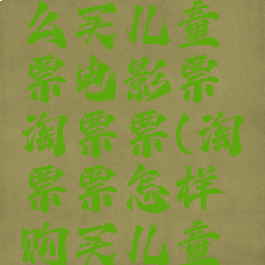 么买儿童
票电影票
淘票票(淘
票票怎样
购买儿童